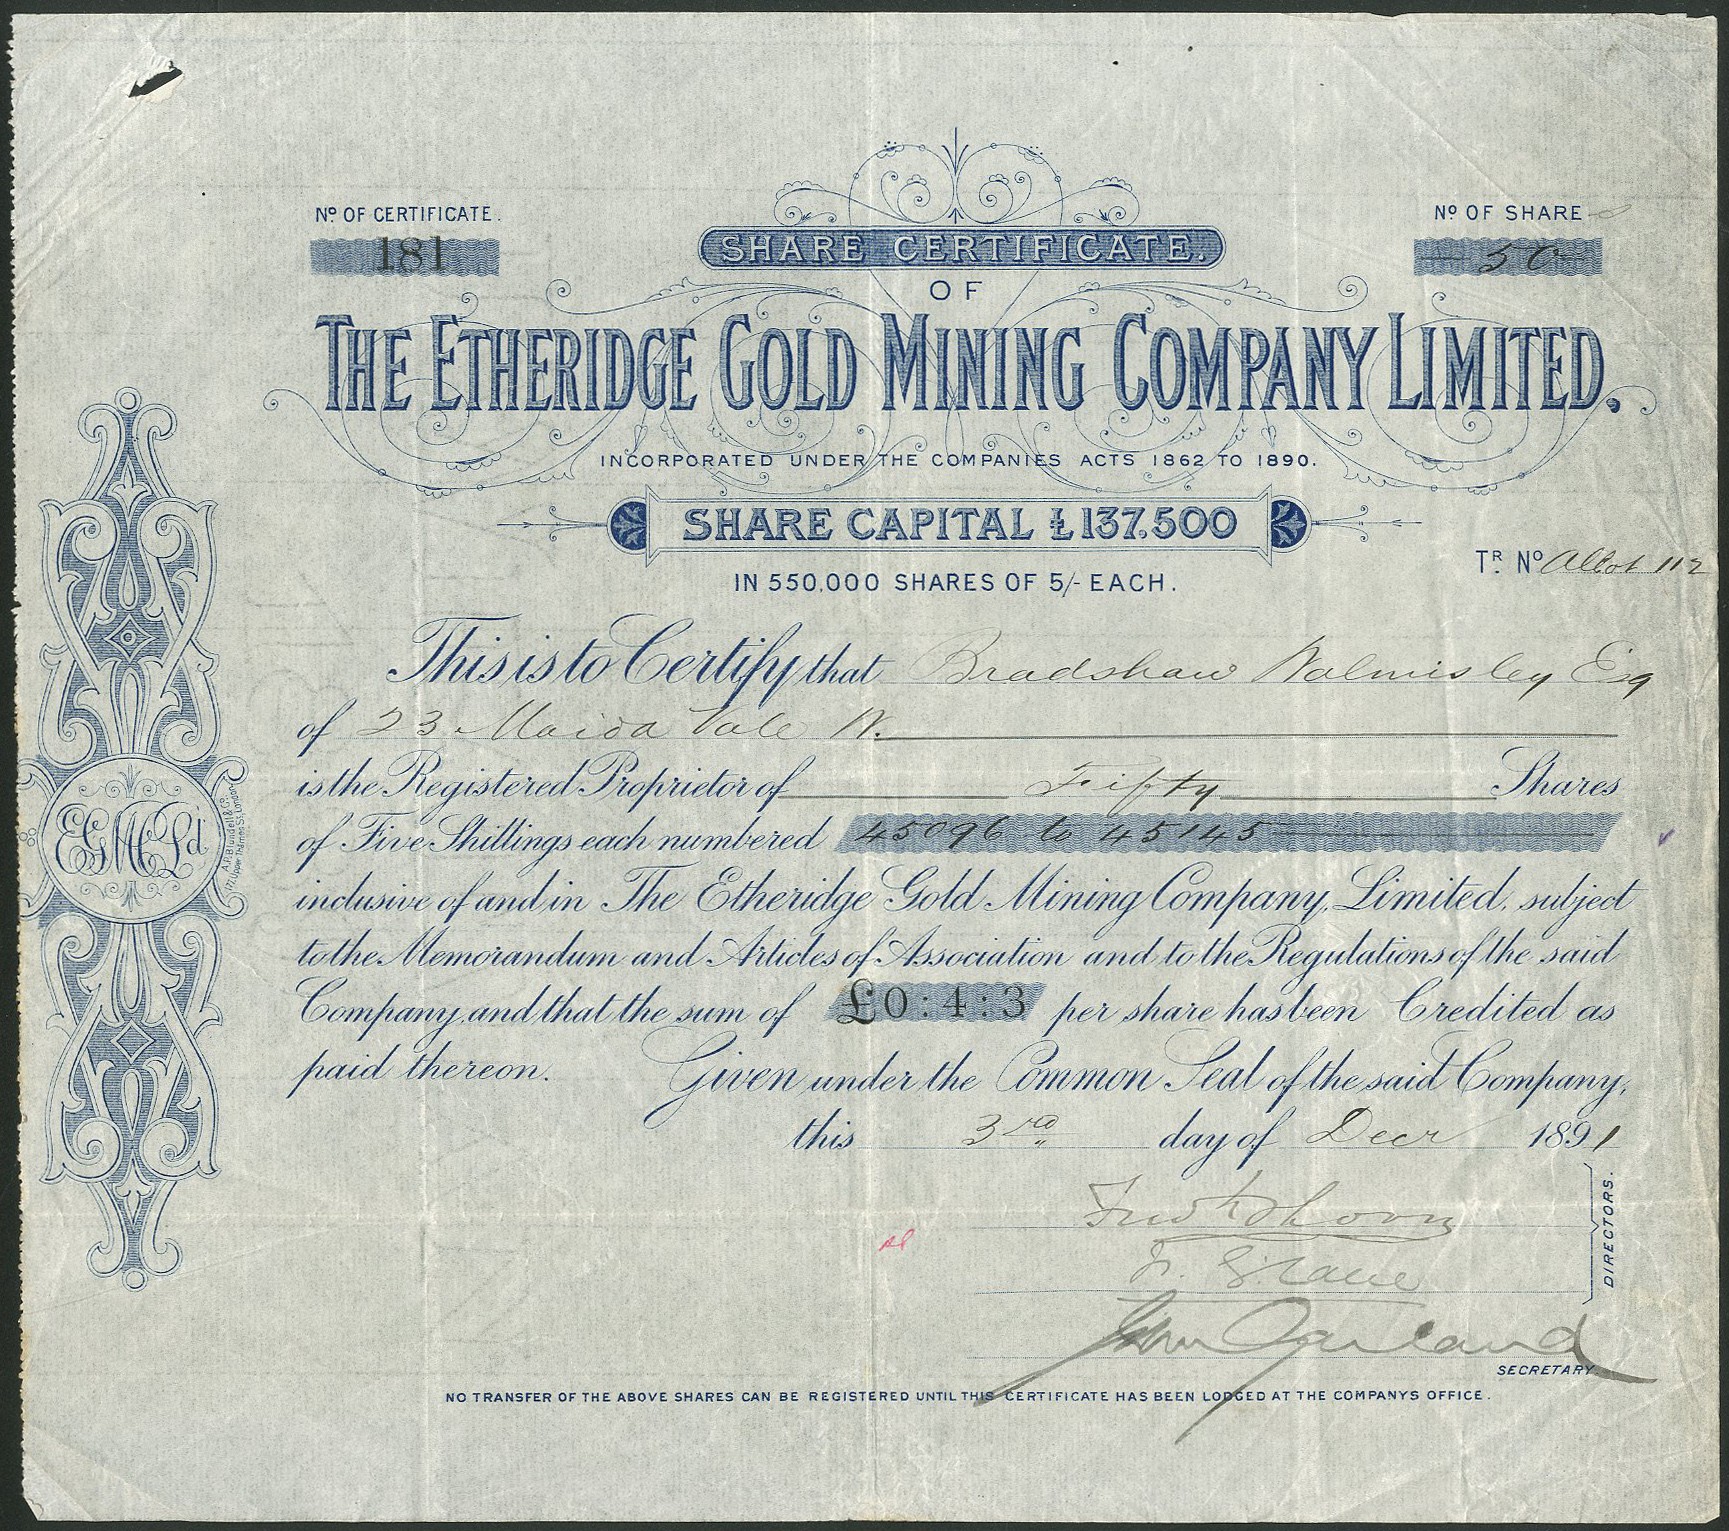 Nº OF CERTIFICATE.
181
Nº OF SHARE s
50
SHARE CERTIFICATE.
OF
THE ETHERIDGE GOLD MINING COMPANY LIMITED.
INCORPORATED UNDER THE COMPANIES ACTS 1862 TO 1890.
SHARE CAPITAL £137,500
IN 550,000 SHARES OF 5/- EACH.
TR. Nº Allot 112
This is to Certify that Bradshaw Walmisley Esq
of 23 Maida Vale W.
is the Registered Proprietor of Fifty Shares
of Five Shillings each numbered 45096 to 45145
inclusive of and in The Etheridge Gold Mining Company, Limited, subject
to the Memorandum and Articles of Association and to the Regulations of the said
Company, and that the sum of £0:4:3 per share has been Credited as
paid thereon. Given under the Common Seal of the said Company,
this 3rd day of Decr 1891
DIRECTORS.
John Garland
SECRETARY.
NO TRANSFER OF THE ABOVE SHARES CAN BE REGISTERED UNTIL THIS CERTIFICATE HAS BEEN LODGED AT THE COMPANYS OFFICE.
EGMCLd
A.P. Blundell & Co.
177, Upper Thames St. London